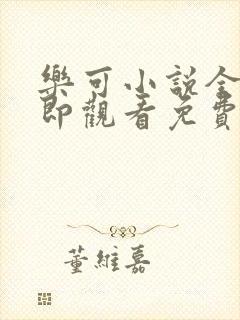 樂可小說全
即觀看免費
董維嘉